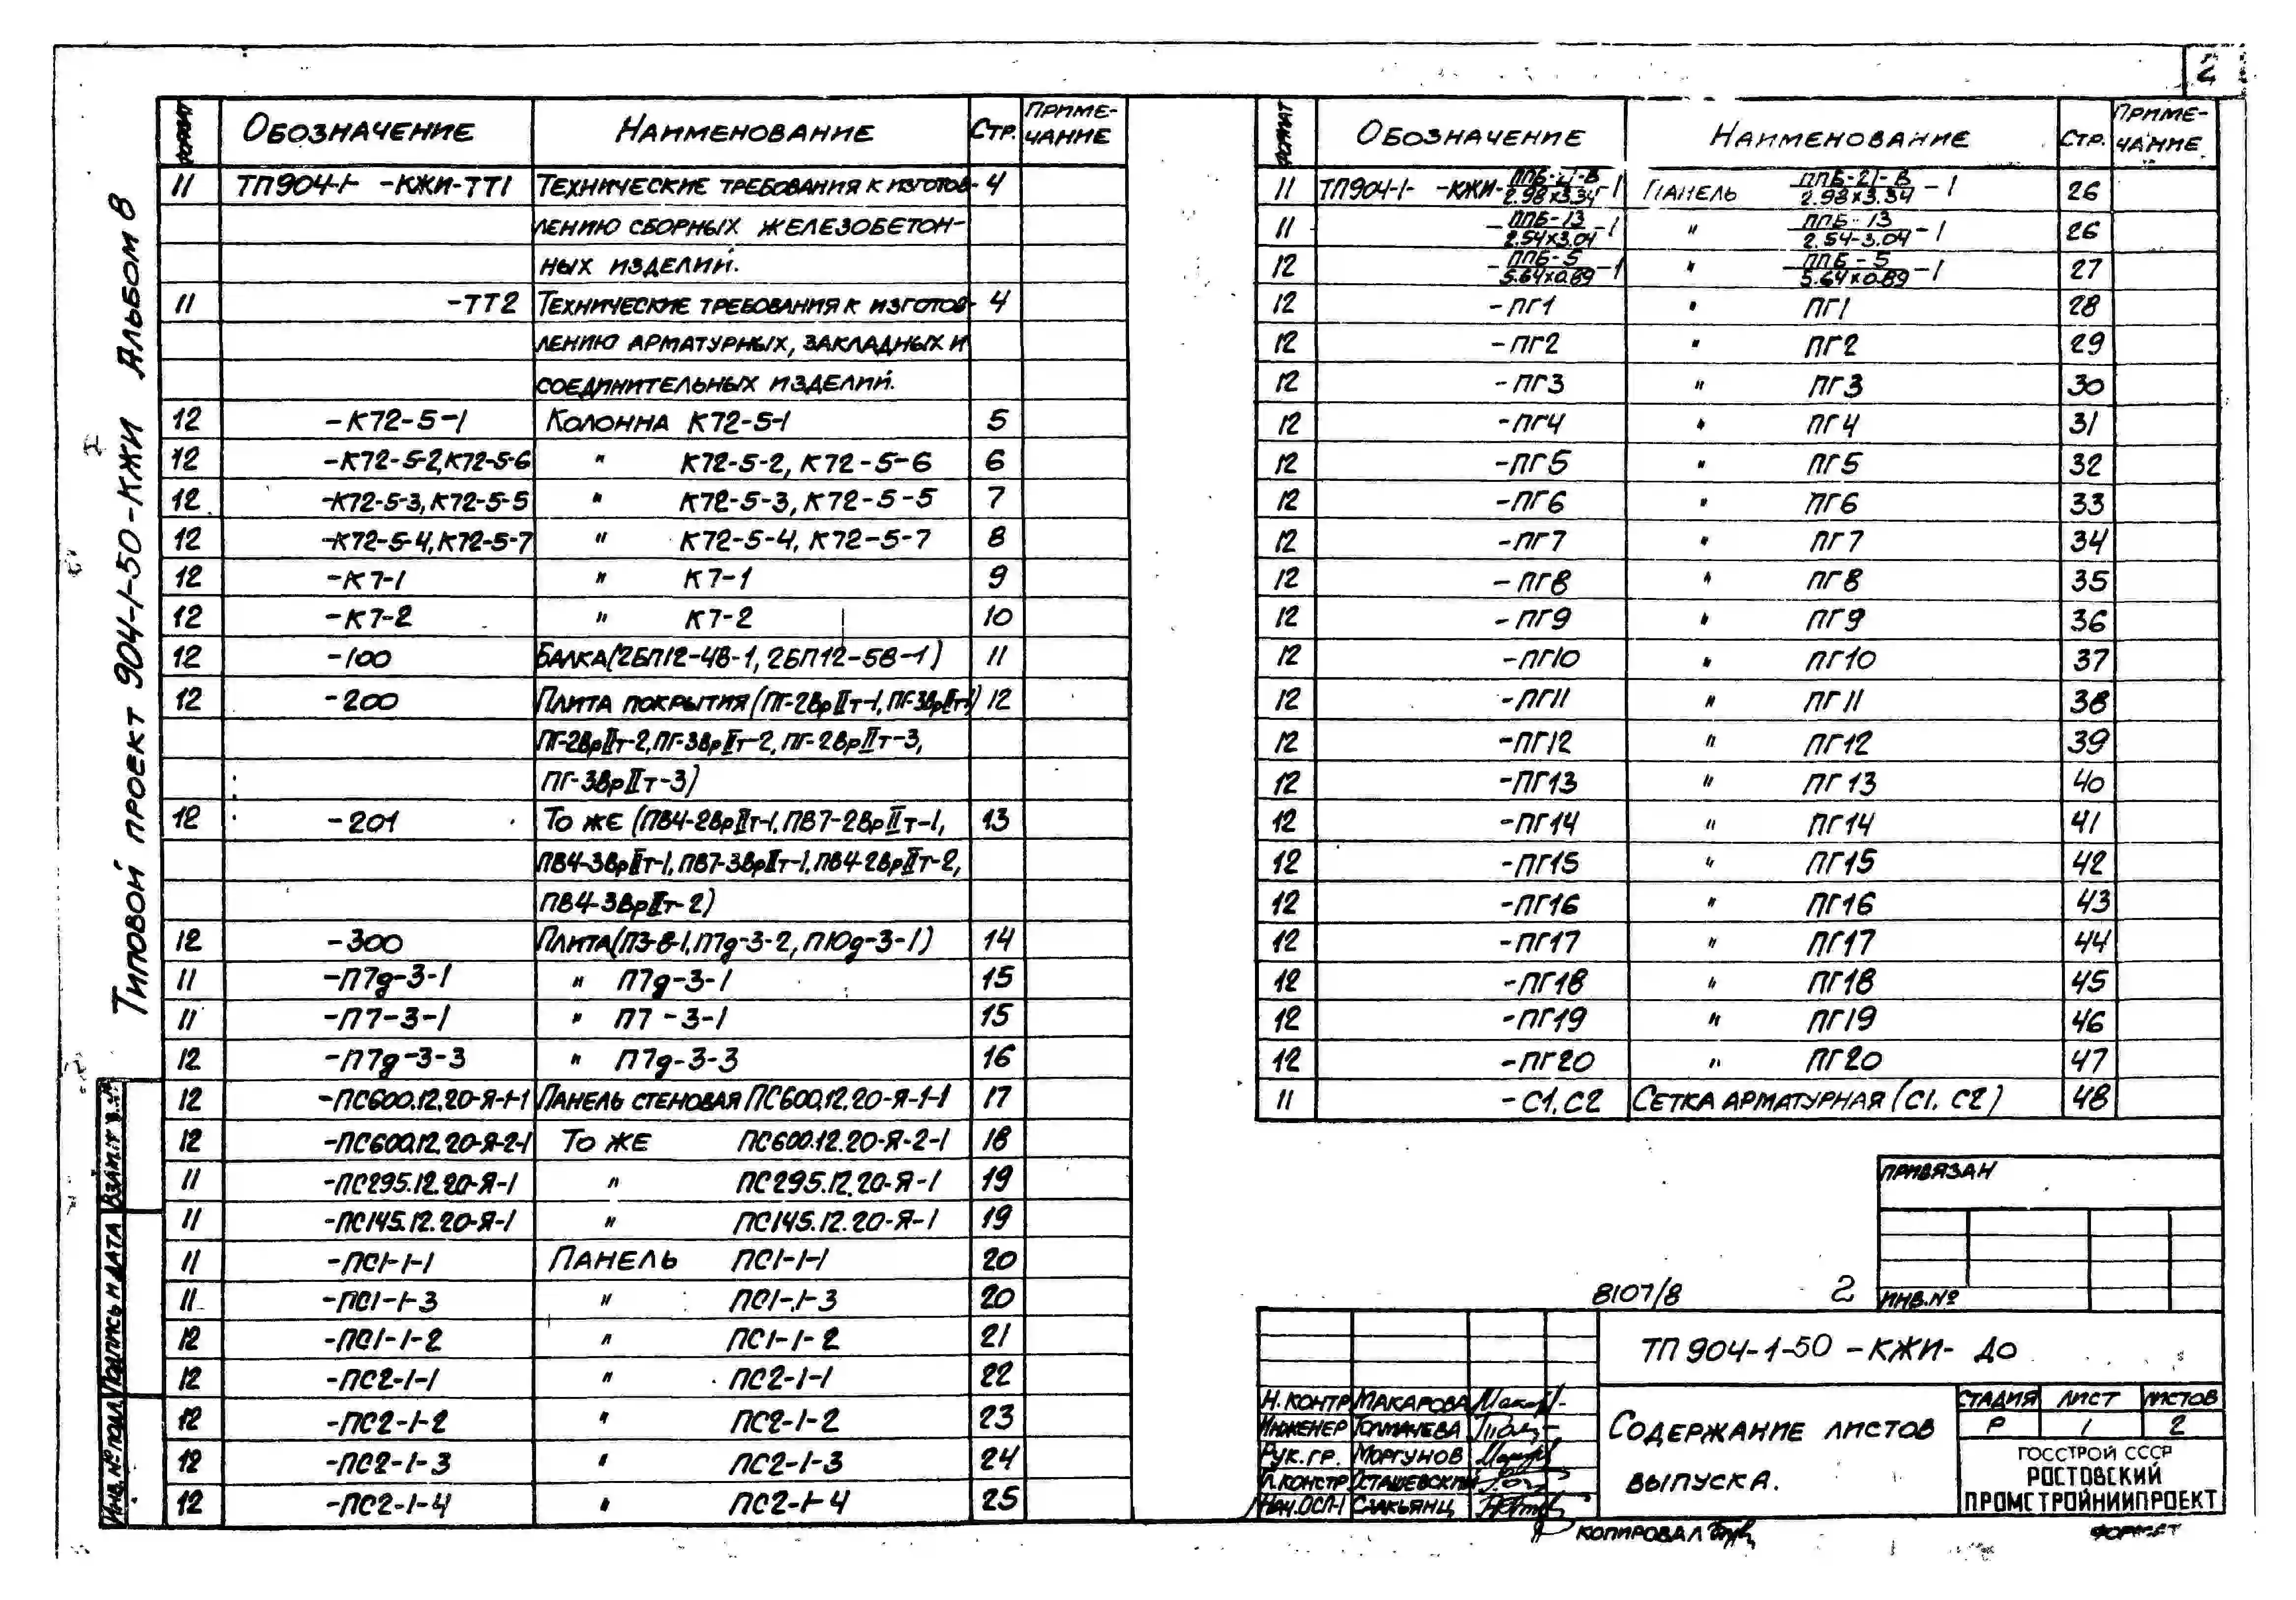 2
Типовой проект 904-1-50-КЖИ Альбом 8
Формат Обозначение Наименование Стр. Приме-
чание
11 ТП904-1- -КЖИ-ТТ1 Технические требования к изготов- 4
лению сборных железобетон-
ных изделий.
11 -ТТ2 Технические требования к изготов- 4
лению арматурных, закладных и
соединительных изделий.
12 -К72-5-1 Колонна К72-5-1 5
12 -К72-5-2,К72-5-6 " К72-5-2, К72-5-6 6
12 -К72-5-3, К72-5-5 " К72-5-3, К72-5-5 7
12 -К72-5-4, К72-5-7 " К72-5-4, К72-5-7 8
12 -К7-1 " К7-1 9
12 -К7-2 " К7-2 10
12 -100 Балка(2БП12-4В-1, 2БП12-5В-1) 11
12 -200 Плита покрытия (ПГ-2ВрIIт-1, ПГ-3ВрIIт-1) 12
ПГ-2ВрIIт-2, ПГ-3ВрIIт-2, ПГ-2ВрIIт-3,
ПГ-3ВрIIт-3)
12 -201 То же (ПВ4-2ВрIIт-1, ПВ7-2ВрIIт-1, 13
ПВ4-3ВрIIт-1, ПВ7-3ВрIIт-1, ПВ4-2ВрIIт-2,
ПВ4-3ВрIIт-2)
12 -300 Плита(П3-8-1, П7д-3-2, П10д-3-1) 14
11 -П7д-3-1 " П7д-3-1 15
11 -П7-3-1 " П7-3-1 15
12 -П7д-3-3 " П7д-3-3 16
12 -ПС600.12.20-Я-1-1 Панель стеновая ПС600.12.20-Я-1-1 17
12 -ПС600.12.20-Я-2-1 То же ПС600.12.20-Я-2-1 18
11 -ПС295.12.20-Я-1 " ПС295.12.20-Я-1 19
11 -ПС145.12.20-Я-1 " ПС145.12.20-Я-1 19
11 -ПС1-1-1 Панель ПС1-1-1 20
11 -ПС1-1-3 " ПС1-1-3 20
12 -ПС1-1-2 " ПС1-1-2 21
12 -ПС2-1-1 " ПС2-1-1 22
12 -ПС2-1-2 " ПС2-1-2 23
12 -ПС2-1-3 " ПС2-1-3 24
12 -ПС2-1-4 " ПС2-1-4 25
Взам. Подпись и дата Инв. № подл.
Формат Обозначение Наименование Стр. Приме-
чание
11 ТП904-1- -КЖИ-ППБ-21-В/2.98x3.34-1 Панель ППБ-21-В/2.98x3.34-1 26
11 -ППБ-13/2.54x3.04-1 " ППБ-13/2.54-3.04-1 26
12 -ППБ-5/5.64x0.89-1 " ППБ-5/5.64x0.89-1 27
12 -ПГ1 " ПГ1 28
12 -ПГ2 " ПГ2 29
12 -ПГ3 " ПГ3 30
12 -ПГ4 " ПГ4 31
12 -ПГ5 " ПГ5 32
12 -ПГ6 " ПГ6 33
12 -ПГ7 " ПГ7 34
12 -ПГ8 " ПГ8 35
12 -ПГ9 " ПГ9 36
12 -ПГ10 " ПГ10 37
12 -ПГ11 " ПГ11 38
12 -ПГ12 " ПГ12 39
12 -ПГ13 " ПГ13 40
12 -ПГ14 " ПГ14 41
12 -ПГ15 " ПГ15 42
12 -ПГ16 " ПГ16 43
12 -ПГ17 " ПГ17 44
12 -ПГ18 " ПГ18 45
12 -ПГ19 " ПГ19 46
12 -ПГ20 " ПГ20 47
11 -С1, С2 Сетка арматурная (С1, С2) 48
Привязан
Инв.№
8107/8 2
ТП 904-1-50-КЖИ- ДО
Н.контр Макарова
Инженер Толмачева
Рук.гр. Моргунов
Гл.констр Осташевский
Нач.ОСП-1 Саакьянц
Содержание листов
выпуска.
Стадия Лист Листов
Р 1 2
ГОССТРОЙ СССР
РОСТОВСКИЙ
ПРОМСТРОЙНИИПРОЕКТ
Копировал
Формат